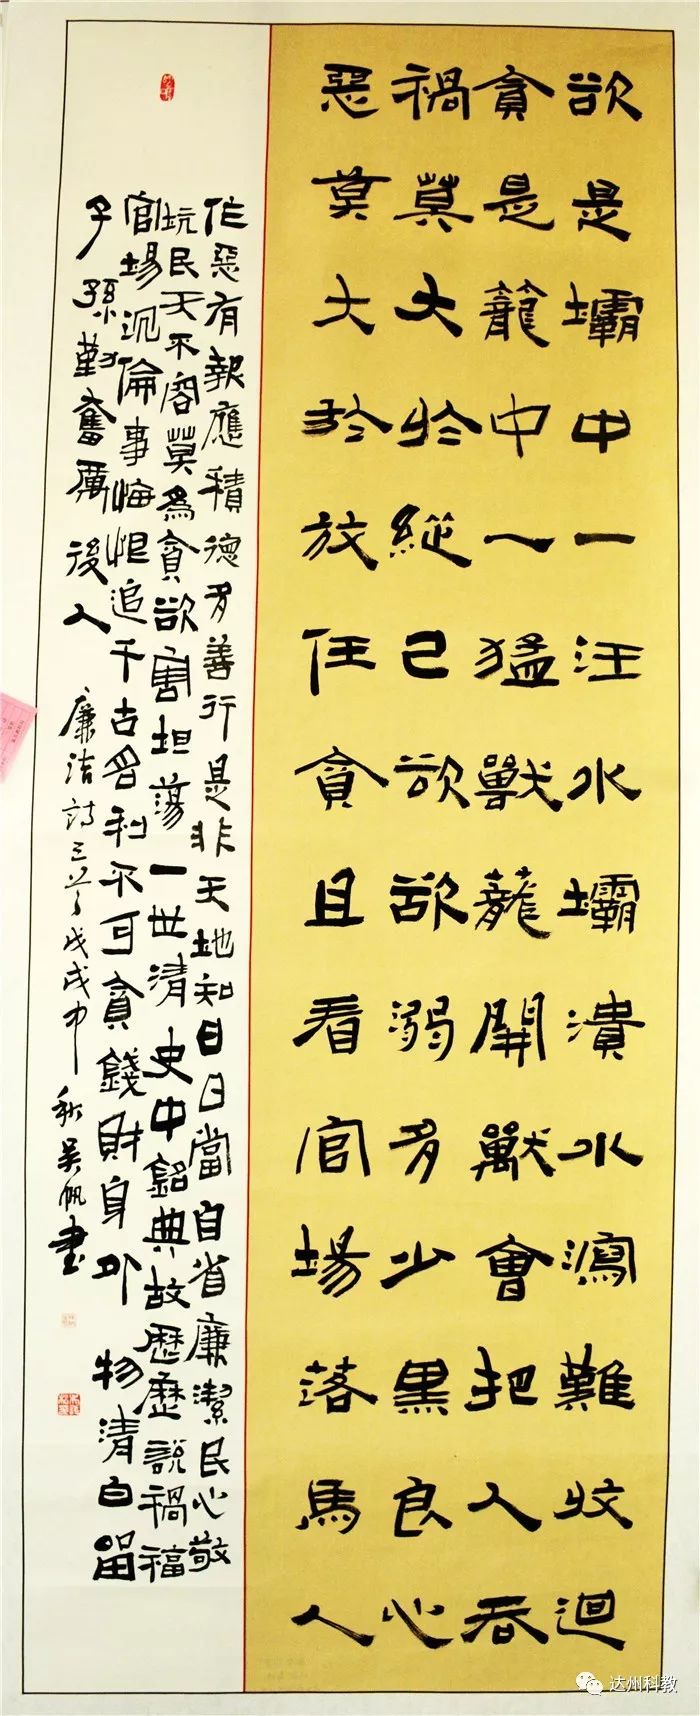 欲是壩中一汪水壩潰水瀉難收迴
貪是籠中一猛獸蘢開獸會把人吞
禍莫大於縱己欲欲溺多少黑良心
惡莫大於放任貪且看官場落馬人
作惡有報應積德多善行是非天地知日日當自省廉潔民心敬
坑民天不容莫為貪欲害坦蕩一世清史中銘典故歷歷說禍福
官場沉倫事悔恨追千古名利不可貪錢財身外物清白留
子孫勤奮厲後人
廉洁詩三首戊戌中秋吳帆書
达州科教